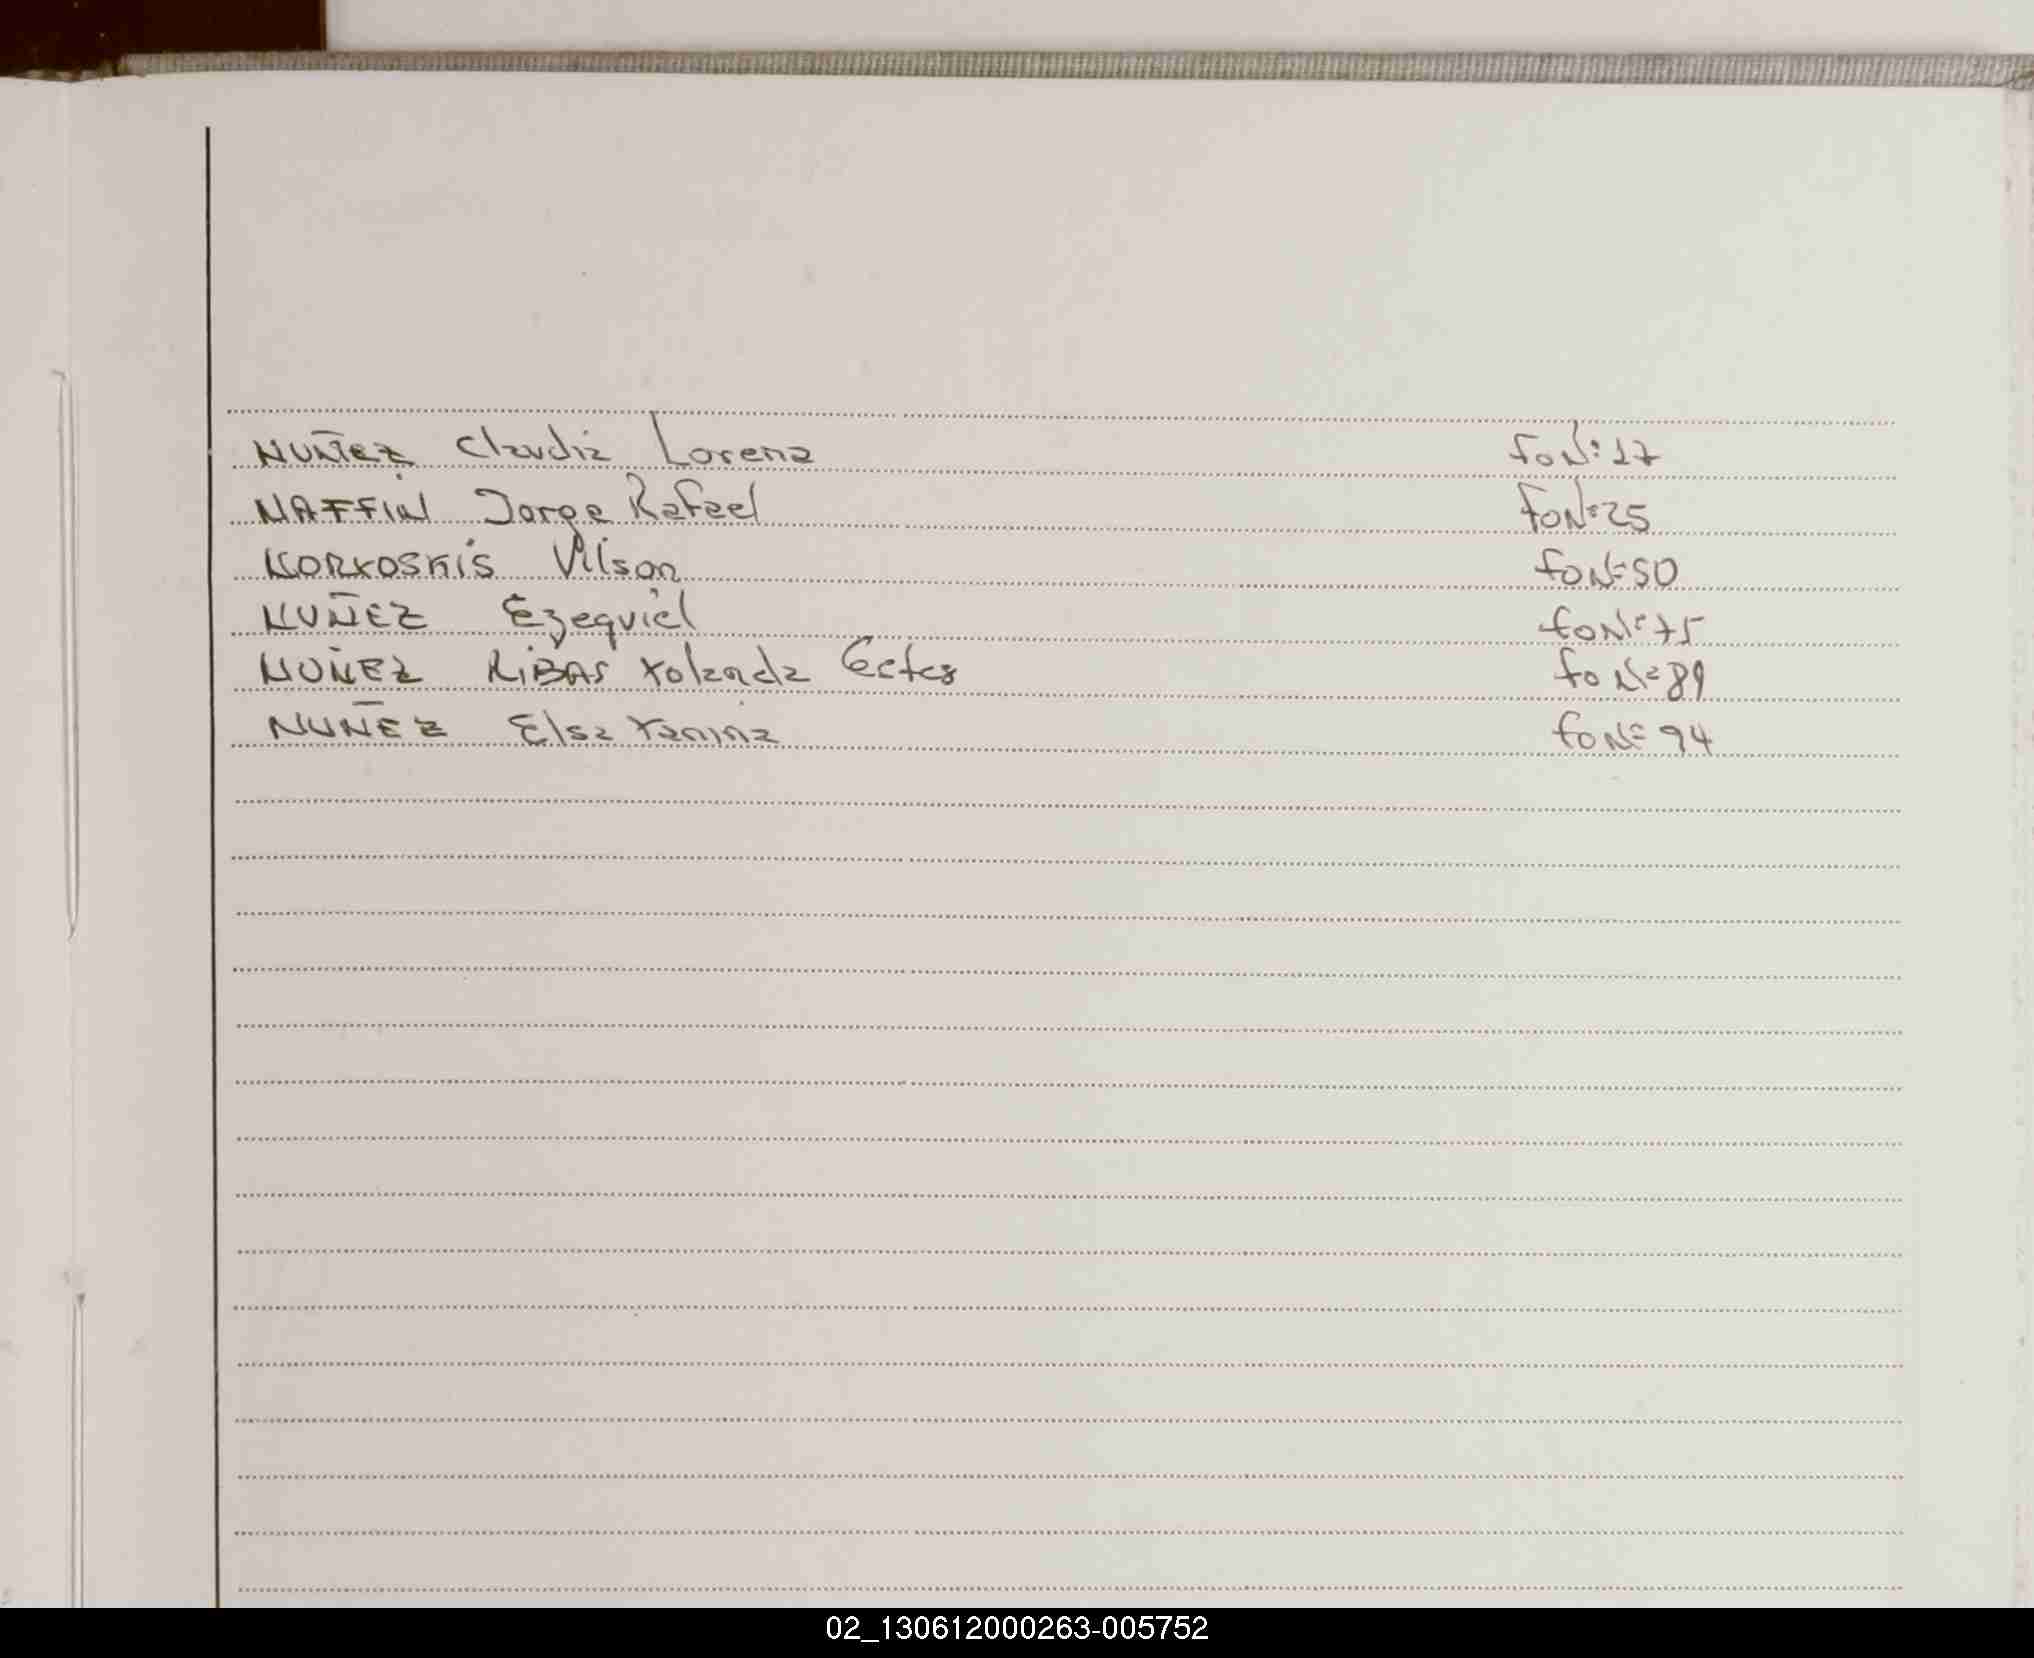 NUÑEZ Claudia Lorena foN: 17
NAFFIN Jorge Rafael foN: 25
NORKOSKIS Vilson foN: 50
NUÑEZ Ezequiel foN: 75
NUÑEZ RIBAS Yolanda foN: 89
NUÑEZ Elsa Yanina foN: 94
02_130612000263-005752